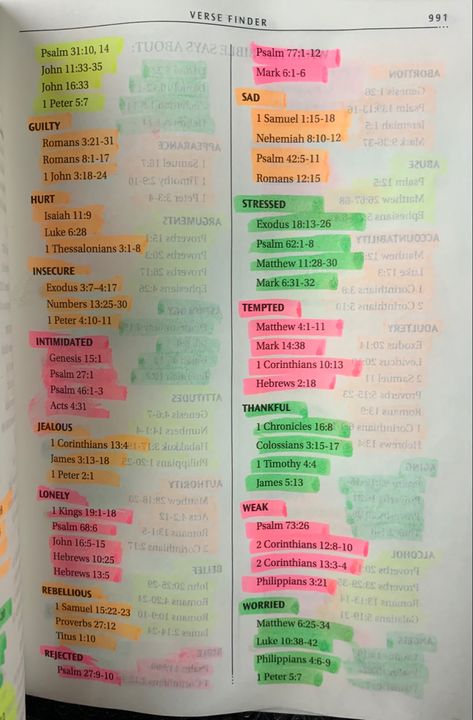 VERSE FINDER
991
Psalm 31:10, 14
John 11:33-35
John 16:33
1 Peter 5:7
GUILTY
Romans 3:21-31
Romans 8:1-17
1 John 3:18-24
HURT
Isaiah 11:9
Luke 6:28
1 Thessalonians 3:1-8
INSECURE
Exodus 3:7–4:17
Numbers 13:25-30
1 Peter 4:10-11
INTIMIDATED
Genesis 15:1
Psalm 27:1
Psalm 46:1-3
Acts 4:31
JEALOUS
1 Corinthians 13:4
James 3:13-18
1 Peter 2:1
LONELY
1 Kings 19:1-18
Psalm 68:6
John 16:5-15
Hebrews 10:25
Hebrews 13:5
REBELLIOUS
1 Samuel 15:22-23
Proverbs 27:12
Titus 1:10
REJECTED
Psalm 27:9-10
Psalm 77:1-12
Mark 6:1-6
SAD
1 Samuel 1:15-18
Nehemiah 8:10-12
Psalm 42:5-11
Romans 12:15
STRESSED
Exodus 18:13-26
Psalm 62:1-8
Matthew 11:28-30
Mark 6:31-32
TEMPTED
Matthew 4:1-11
Mark 14:38
1 Corinthians 10:13
Hebrews 2:18
THANKFUL
1 Chronicles 16:8
Colossians 3:15-17
1 Timothy 4:4
James 5:13
WEAK
Psalm 73:26
2 Corinthians 12:8-10
2 Corinthians 13:3-4
Philippians 3:21
WORRIED
Matthew 6:25-34
Luke 10:38-42
Philippians 4:6-9
1 Peter 5:7